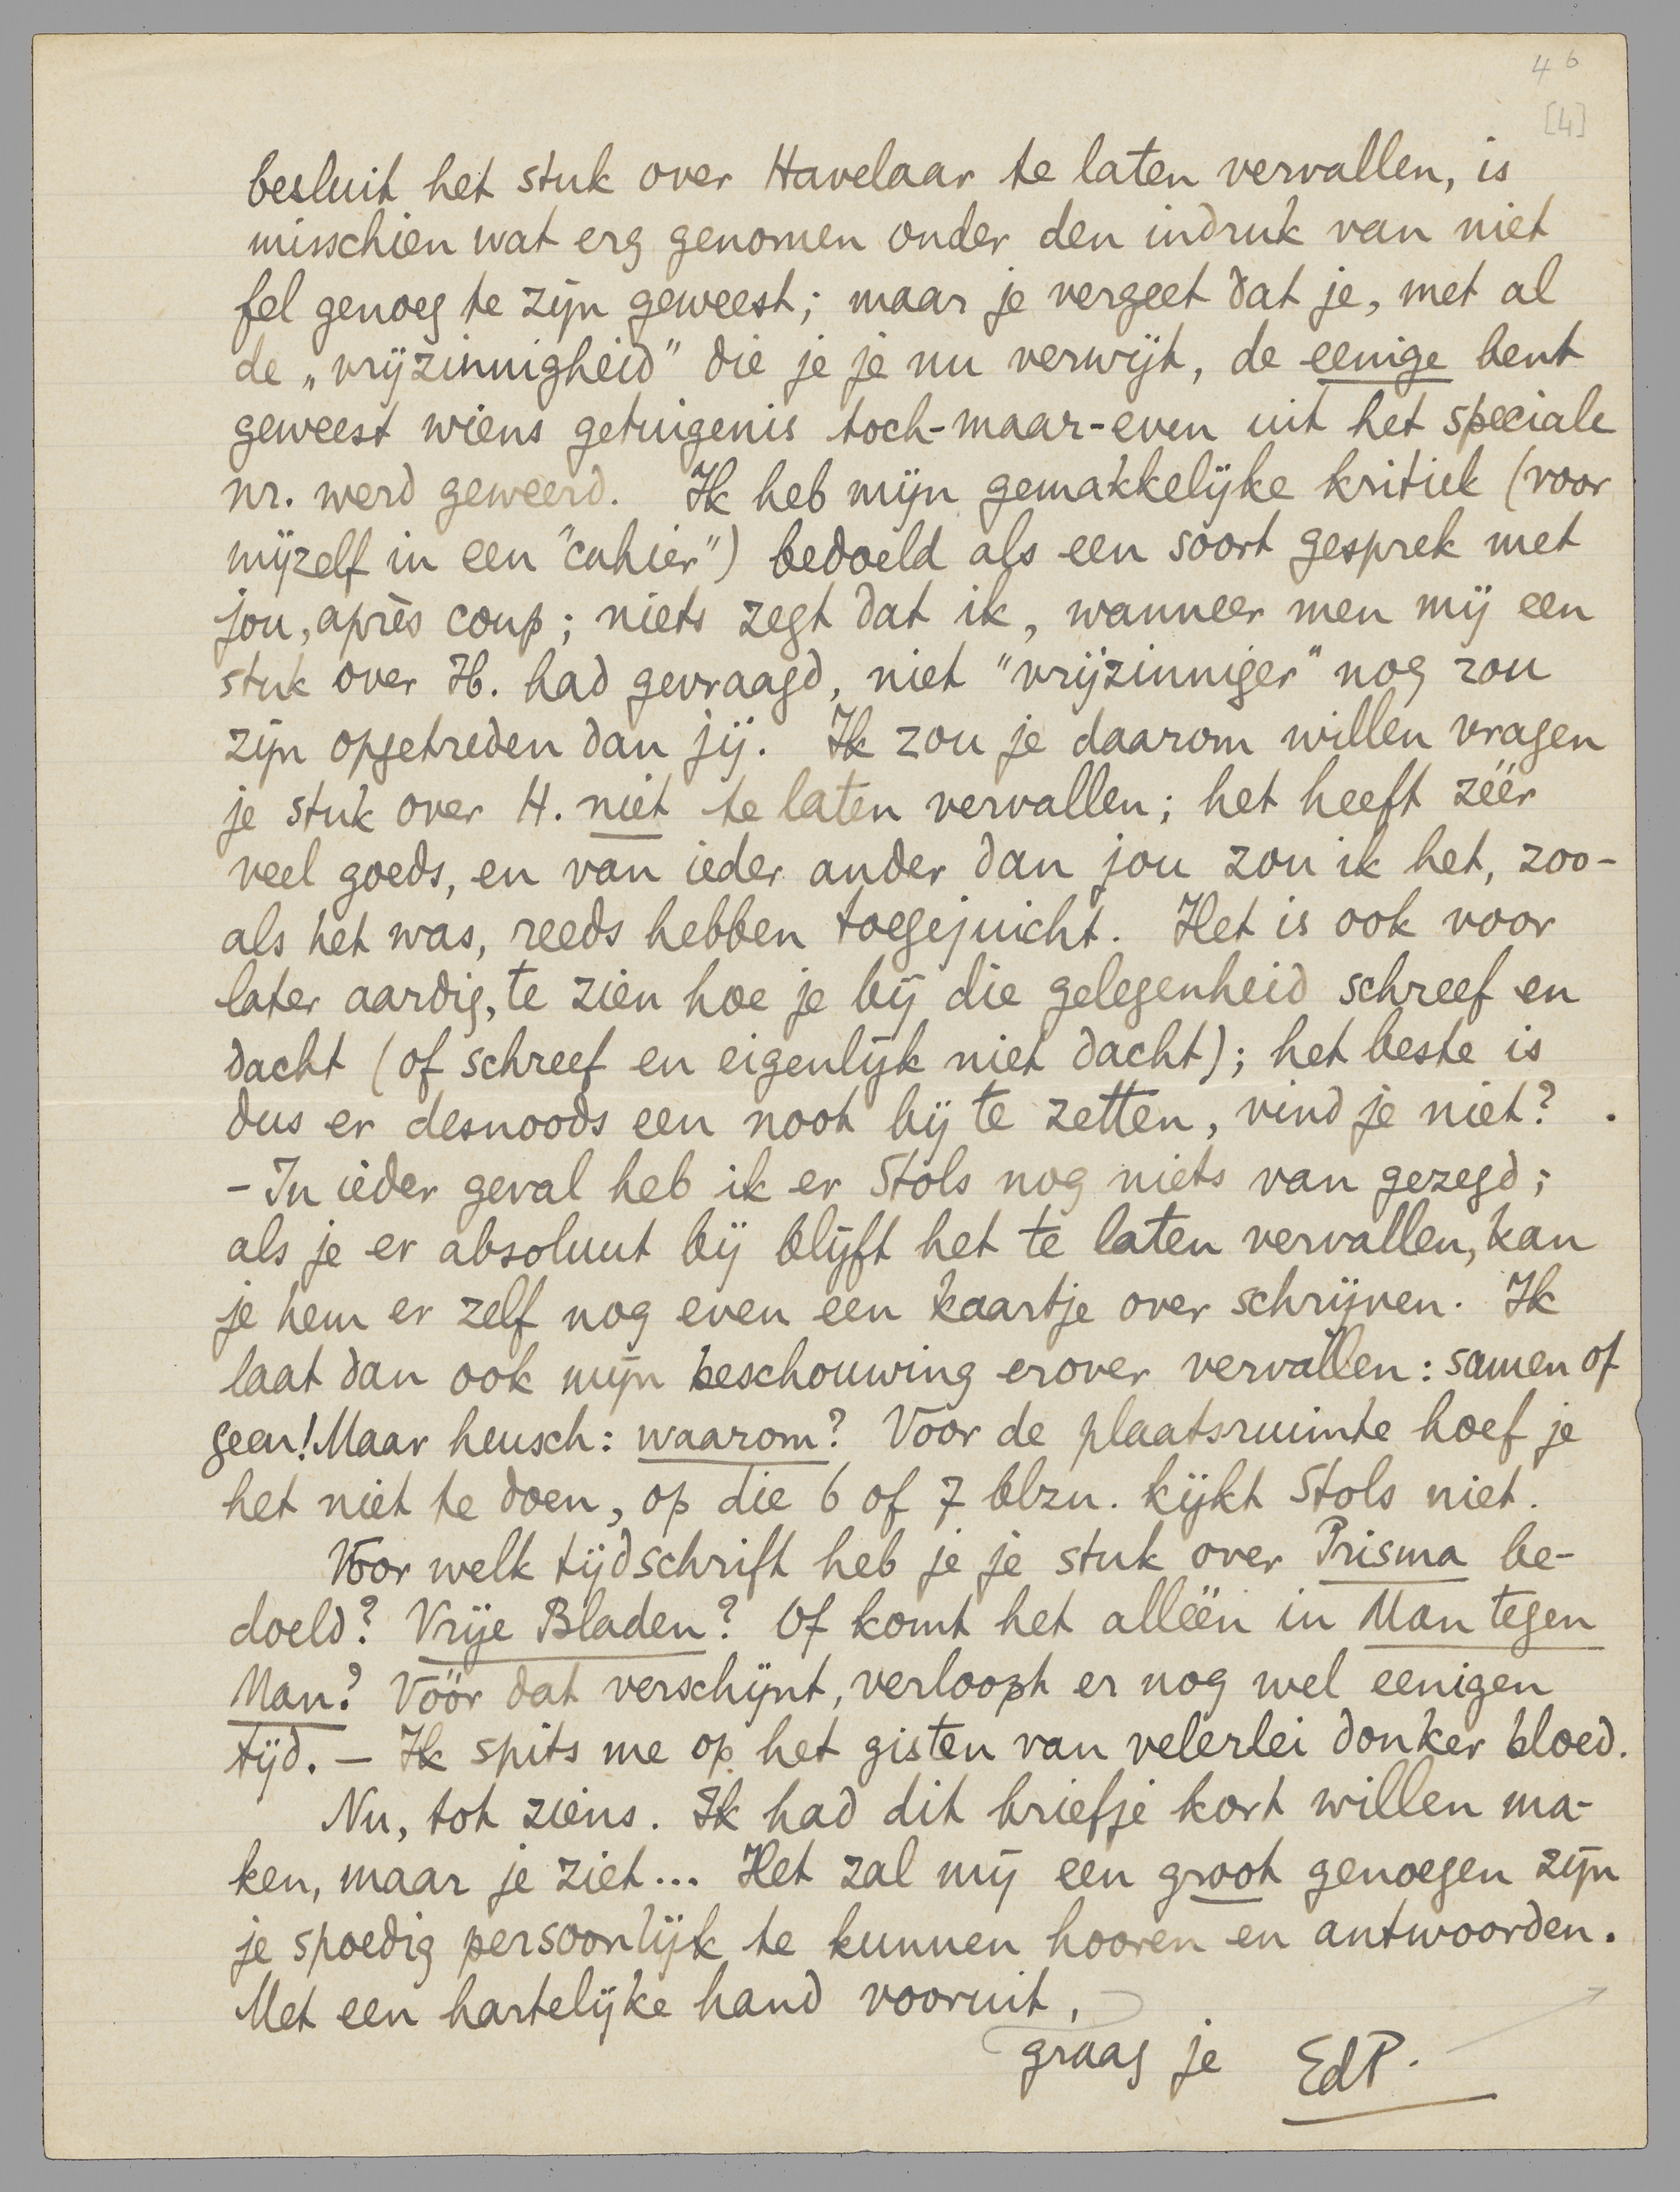 4 6
[4]
besluit het stuk over Havelaar te laten vervallen, is
misschien wat erg genomen onder den indruk van niet
fel genoeg te zijn geweest; maar je vergeet dat je, met al
de „vrijzinnigheid" die je je nu verwijt, de eenige bent
geweest wiens getuigenis toch-maar-even uit het speciale
nr. werd geweerd. Ik heb mijn gemakkelijke kritiek (voor
mijzelf in een "cahier") bedoeld als een soort gesprek met
jou, après coup; niets zegt dat ik, wanneer men mij een
stuk over H. had gevraagd, niet "vrijzinniger" nog zou
zijn opgetreden dan jij. Ik zou je daarom willen vragen
je stuk over H. niet te laten vervallen; het heeft zéér
veel goeds, en van ieder ander dan jou zou ik het, zoo-
als het was, reeds hebben toegejuicht. Het is ook voor
later aardig, te zien hoe je bij die gelegenheid schreef en
dacht (of schreef en eigenlijk niet dacht); het beste is
dus er desnoods een noot bij te zetten, vind je niet?
- In ieder geval heb ik er Stols nog niets van gezegd;
als je er absoluut bij blijft het te laten vervallen, kan
je hem er zelf nog even een kaartje over schrijven. Ik
laat dan ook mijn beschouwing erover vervallen: samen of
geen! Maar heusch: waarom? Voor de plaatsruimte hoef je
het niet te doen, op die 6 of 7 blzn. kijkt Stols niet.
Voor welk tijdschrift heb je je stuk over Prisma be-
doeld? Vrije Bladen? Of komt het alléén in Man tegen
Man? Vóór dat verschijnt, verloopt er nog wel eenigen
tijd. — Ik spits me op het gisten van velerlei donker bloed.
Nu, tot ziens. Ik had dit briefje kort willen ma-
ken, maar je ziet... Het zal mij een groot genoegen zijn
je spoedig persoonlijk te kunnen hooren en antwoorden.
Met een hartelijke hand vooruit,
graag je EdP.